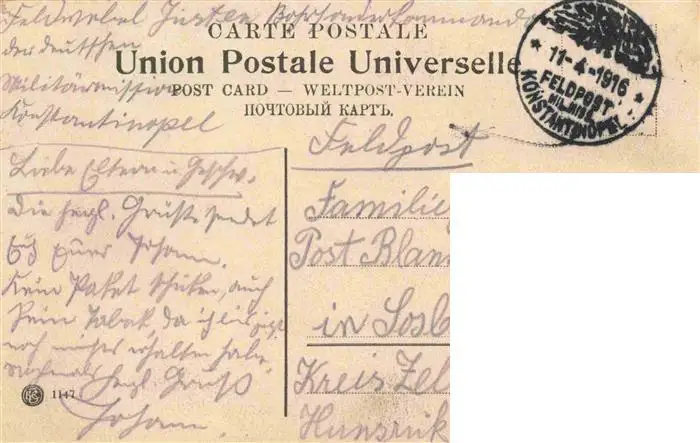 Feldwebel Bohrsonderkommando
der deutschen
Militärmission
Konstantinopel
CARTE POSTALE
Union Postale Universelle
POST CARD — WELTPOST-VEREIN
ПОЧТОВЫЙ КАРТЪ.
11-4-1916
FELDPOST
MIL. MISS.
KONSTANTINOPEL
Liebe Eltern u. Geschw.
Die herzl. Grüße sendet
Euch Euer Johann.
Kein Paket schicken, auch
kein Tabak, da ich bis jetzt
noch nichts erhalten habe.
nochmals herzl. Gruß
Johann.
1147
Feldpost
Familie
Post Blan
in Sosb
Kreis Zel
Hunsrük